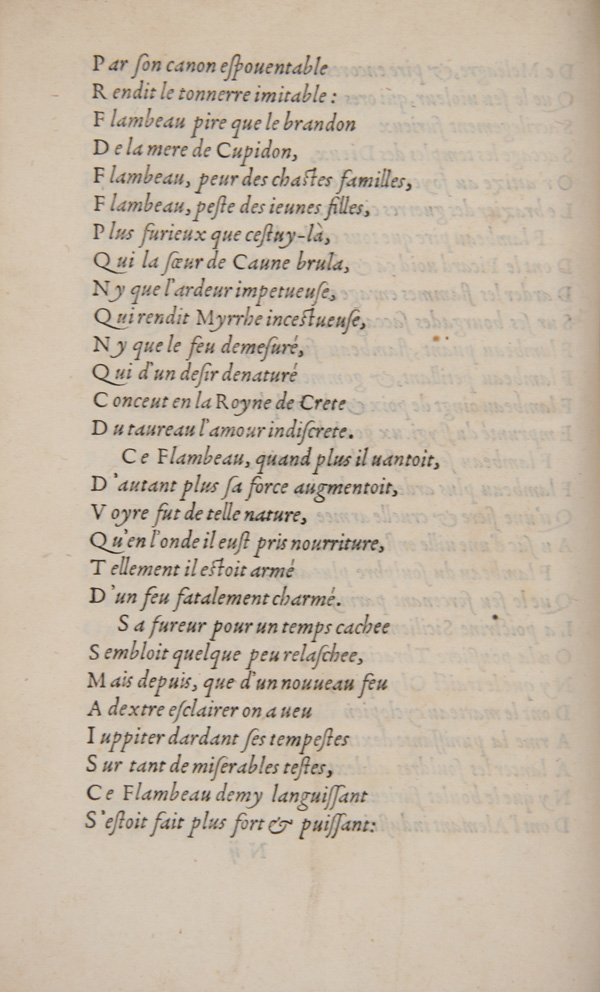 Par ſon canon eſpouentable
Rendit le tonnerre imitable :
Flambeau pire que le brandon
De la mere de Cupidon,
Flambeau, peur des chaſtes familles,
Flambeau, peſte des ieunes filles,
Plus furieux que ceſtuy-là,
Qui la ſœur de Caune brula,
Ny que l'ardeur impetueuſe,
Qui rendit Myrrhe inceſtueuſe,
Ny que le feu demeſuré,
Qui d'un deſir denaturé
Conceut en la Royne de Crete
Du taureau l'amour indiſcrete.
Ce Flambeau, quand plus il uantoit,
D'autant plus ſa force augmentoit,
Voyre fut de telle nature,
Qu'en l'onde il euſt pris nourriture,
Tellement il eſtoit armé
D'un feu fatalement charmé.
Sa fureur pour un temps cachee
Sembloit quelque peu relaſchee,
Mais depuis, que d'un nouueau feu
A dextre eſclairer on a ueu
Iuppiter dardant ſes tempeſtes
Sur tant de miſerables teſtes,
Ce Flambeau demy languiſſant
S'eſtoit fait plus fort & puiſſant: